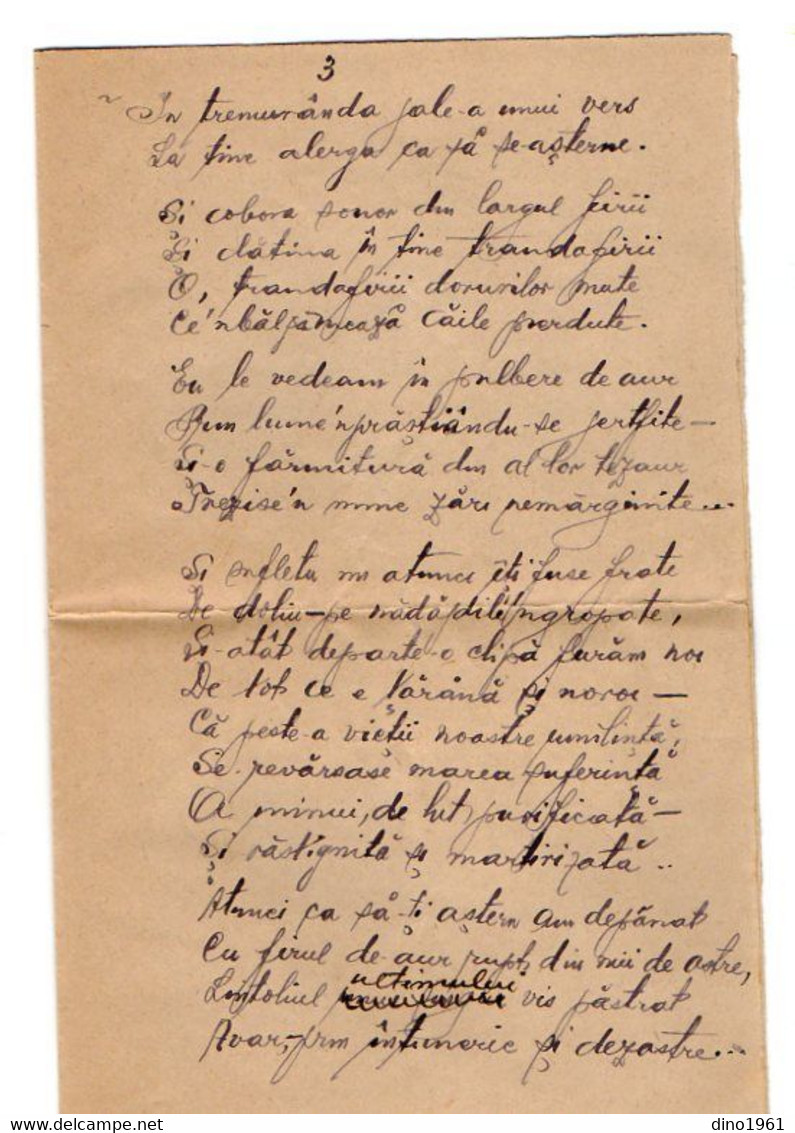 3
In tremurânda jale-a unui vers
La tine alerga ca să se-așterne.
Și cobora sonor din largul firii
Și clătina în tine trandafirii
O, trandafirii dorurilor mute
Ce'nbălsămează căile perdute.
Eu le vedeam în pulbere de aur
Prin lume'nprăștiindu-se jertfite—
Și-o fărmitură din al lor tezaur
Trezise'n mine zări nemărginite...
Și sufletu mi atunci îți fuse frate
De doliu—pe nădăjdile'ngropate,
Și-atât departe-o clipă furăm noi
De tot ce e țărână și noroi—
Că peste-a vieții noastre umilință,
Se revărsase marea suferință
A minui, de lut, purificată—
Și răstignită și martirizată..
Atunci ca să-ți aștern am depănat
Cu firul de aur rupt, din mii de astre,
Lințoliul ultimului vis păstrat
Avar,-prin întuneric și dezastre...
dino1961